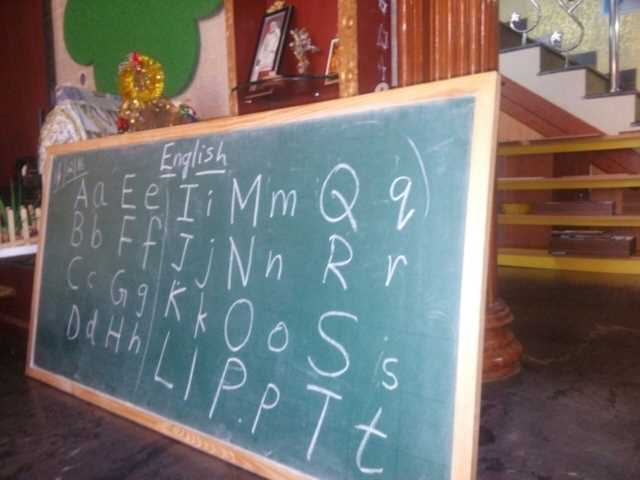 English
Aa Ee Ii Mm Qq
Bb Ff Jj Nn Rr
Cc Gg Kk Oo Ss
Dd Hh Ll Pp Tt